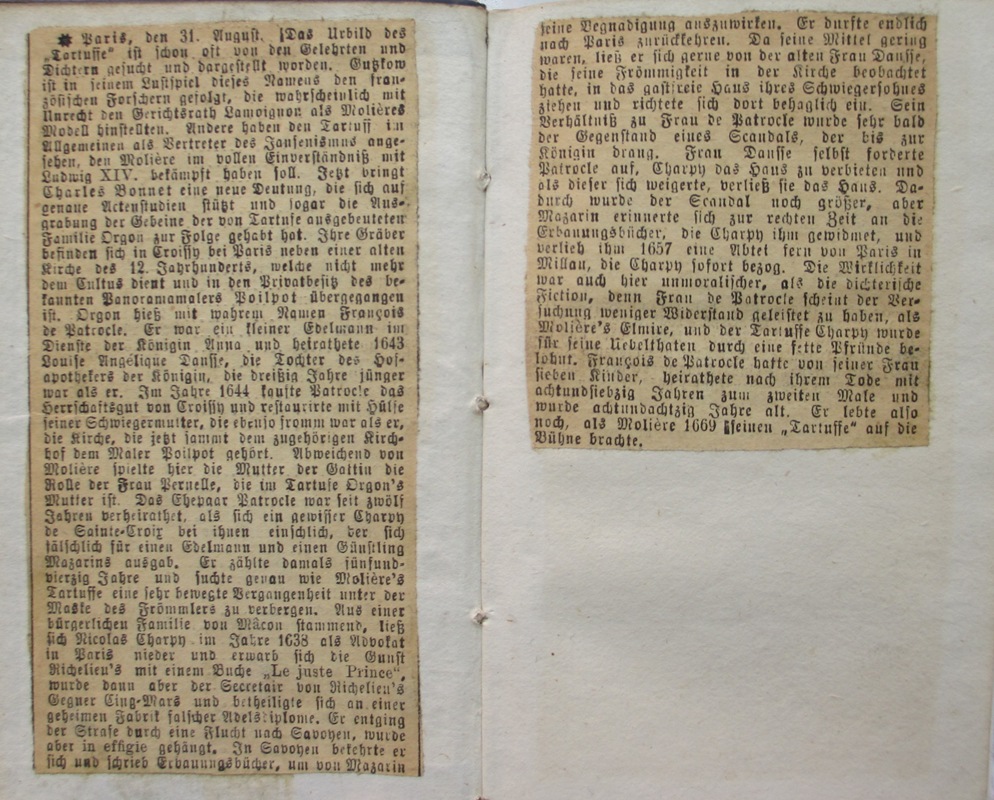 * Paris, den 31. August. Das Urbild des
„Tartuffe“ ist schon oft von den Gelehrten und
Dichtern gesucht und dargestellt worden. Gutzkow
ist in seinem Lustspiel dieses Namens den fran-
zösischen Forschern gefolgt, die wahrscheinlich mit
Unrecht den Gerichtsrath Lamoignon als Molières
Modell hinstellten. Andere haben den Tartuff im
Allgemeinen als Vertreter des Jansenismus ange-
sehen, den Molière im vollen Einverständniß mit
Ludwig XIV. bekämpft haben soll. Jetzt bringt
Charles Bonnet eine neue Deutung, die sich auf
genaue Actenstudien stützt und sogar die Aus-
grabung der Gebeine der von Tartufe ausgebeuteten
Familie Orgon zur Folge gehabt hat. Ihre Gräber
befinden sich in Croissy bei Paris neben einer alten
Kirche des 12. Jahrhunderts, welche nicht mehr
dem Cultus dient und in den Privatbesitz des be-
kannten Panoramamalers Poilpot übergegangen
ist. Orgon hieß mit wahrem Namen François
de Patrocle. Er war ein kleiner Edelmann im
Dienste der Königin Anna und heirathete 1643
Louise Angélique Dansse, die Tochter des Hof-
apothekers der Königin, die dreißig Jahre jünger
war als er. Im Jahre 1644 kaufte Patrocle das
Herrschaftsgut von Croissy und restaurirte mit Hülfe
seiner Schwiegermutter, die ebenso fromm war als er,
die Kirche, die jetzt sammt dem zugehörigen Kirch-
hof dem Maler Poilpot gehört. Abweichend von
Molière spielte hier die Mutter der Gattin die
Rolle der Frau Pernelle, die im Tartufe Orgon's
Mutter ist. Das Ehepaar Patrocle war seit zwölf
Jahren verheirathet, als sich ein gewisser Charpy
de Sainte-Croix bei ihnen einschlich, der sich
fälschlich für einen Edelmann und einen Günstling
Mazarins ausgab. Er zählte damals fünfund-
vierzig Jahre und suchte genau wie Molière's
Tartuffe eine sehr bewegte Vergangenheit unter der
Maske des Frömmlers zu verbergen. Aus einer
bürgerlichen Familie von Mâcon stammend, ließ
sich Nicolas Charpy im Jahre 1638 als Advokat
in Paris nieder und erwarb sich die Gunst
Richelieu's mit einem Buche „Le juste Prince“,
wurde dann aber der Secretair von Richelieu's
Gegner Cinq-Mars und betheiligte sich an einer
geheimen Fabrik falscher Adelsdiplome. Er entging
der Strafe durch eine Flucht nach Savoyen, wurde
aber in effigie gehängt. In Savoyen bekehrte er
sich und schrieb Erbauungsbücher, um von Mazarin
seine Begnadigung auszuwirken. Er durfte endlich
nach Paris zurückkehren. Da seine Mittel gering
waren, ließ er sich gerne von der alten Frau Dansse,
die seine Frömmigkeit in der Kirche beobachtet
hatte, in das gastfreie Haus ihres Schwiegersohnes
ziehen und richtete sich dort behaglich ein. Sein
Verhältniß zu Frau de Patrocle wurde sehr bald
der Gegenstand eines Scandals, der bis zur
Königin drang. Frau Dansse selbst forderte
Patrocle auf, Charpy das Haus zu verbieten und
als dieser sich weigerte, verließ sie das Haus. Da-
durch wurde der Scandal noch größer, aber
Mazarin erinnerte sich zur rechten Zeit an die
Erbauungsbücher, die Charpy ihm gewidmet, und
verlieh ihm 1657 eine Abtei fern von Paris in
Millau, die Charpy sofort bezog. Die Wirklichkeit
war auch hier unmoralischer, als die dichterische
Fiction, denn Frau de Patrocle scheint der Ver-
suchung weniger Widerstand geleistet zu haben, als
Molière's Elmire, und der Tartuffe Charpy wurde
für seine Uebelthaten durch eine fette Pfründe be-
lohnt. François de Patrocle hatte von seiner Frau
sieben Kinder, heirathete nach ihrem Tode mit
achtundsiebzig Jahren zum zweiten Male und
wurde achtundachtzig Jahre alt. Er lebte also
noch, als Molière 1669 seinen „Tartuffe“ auf die
Bühne brachte.